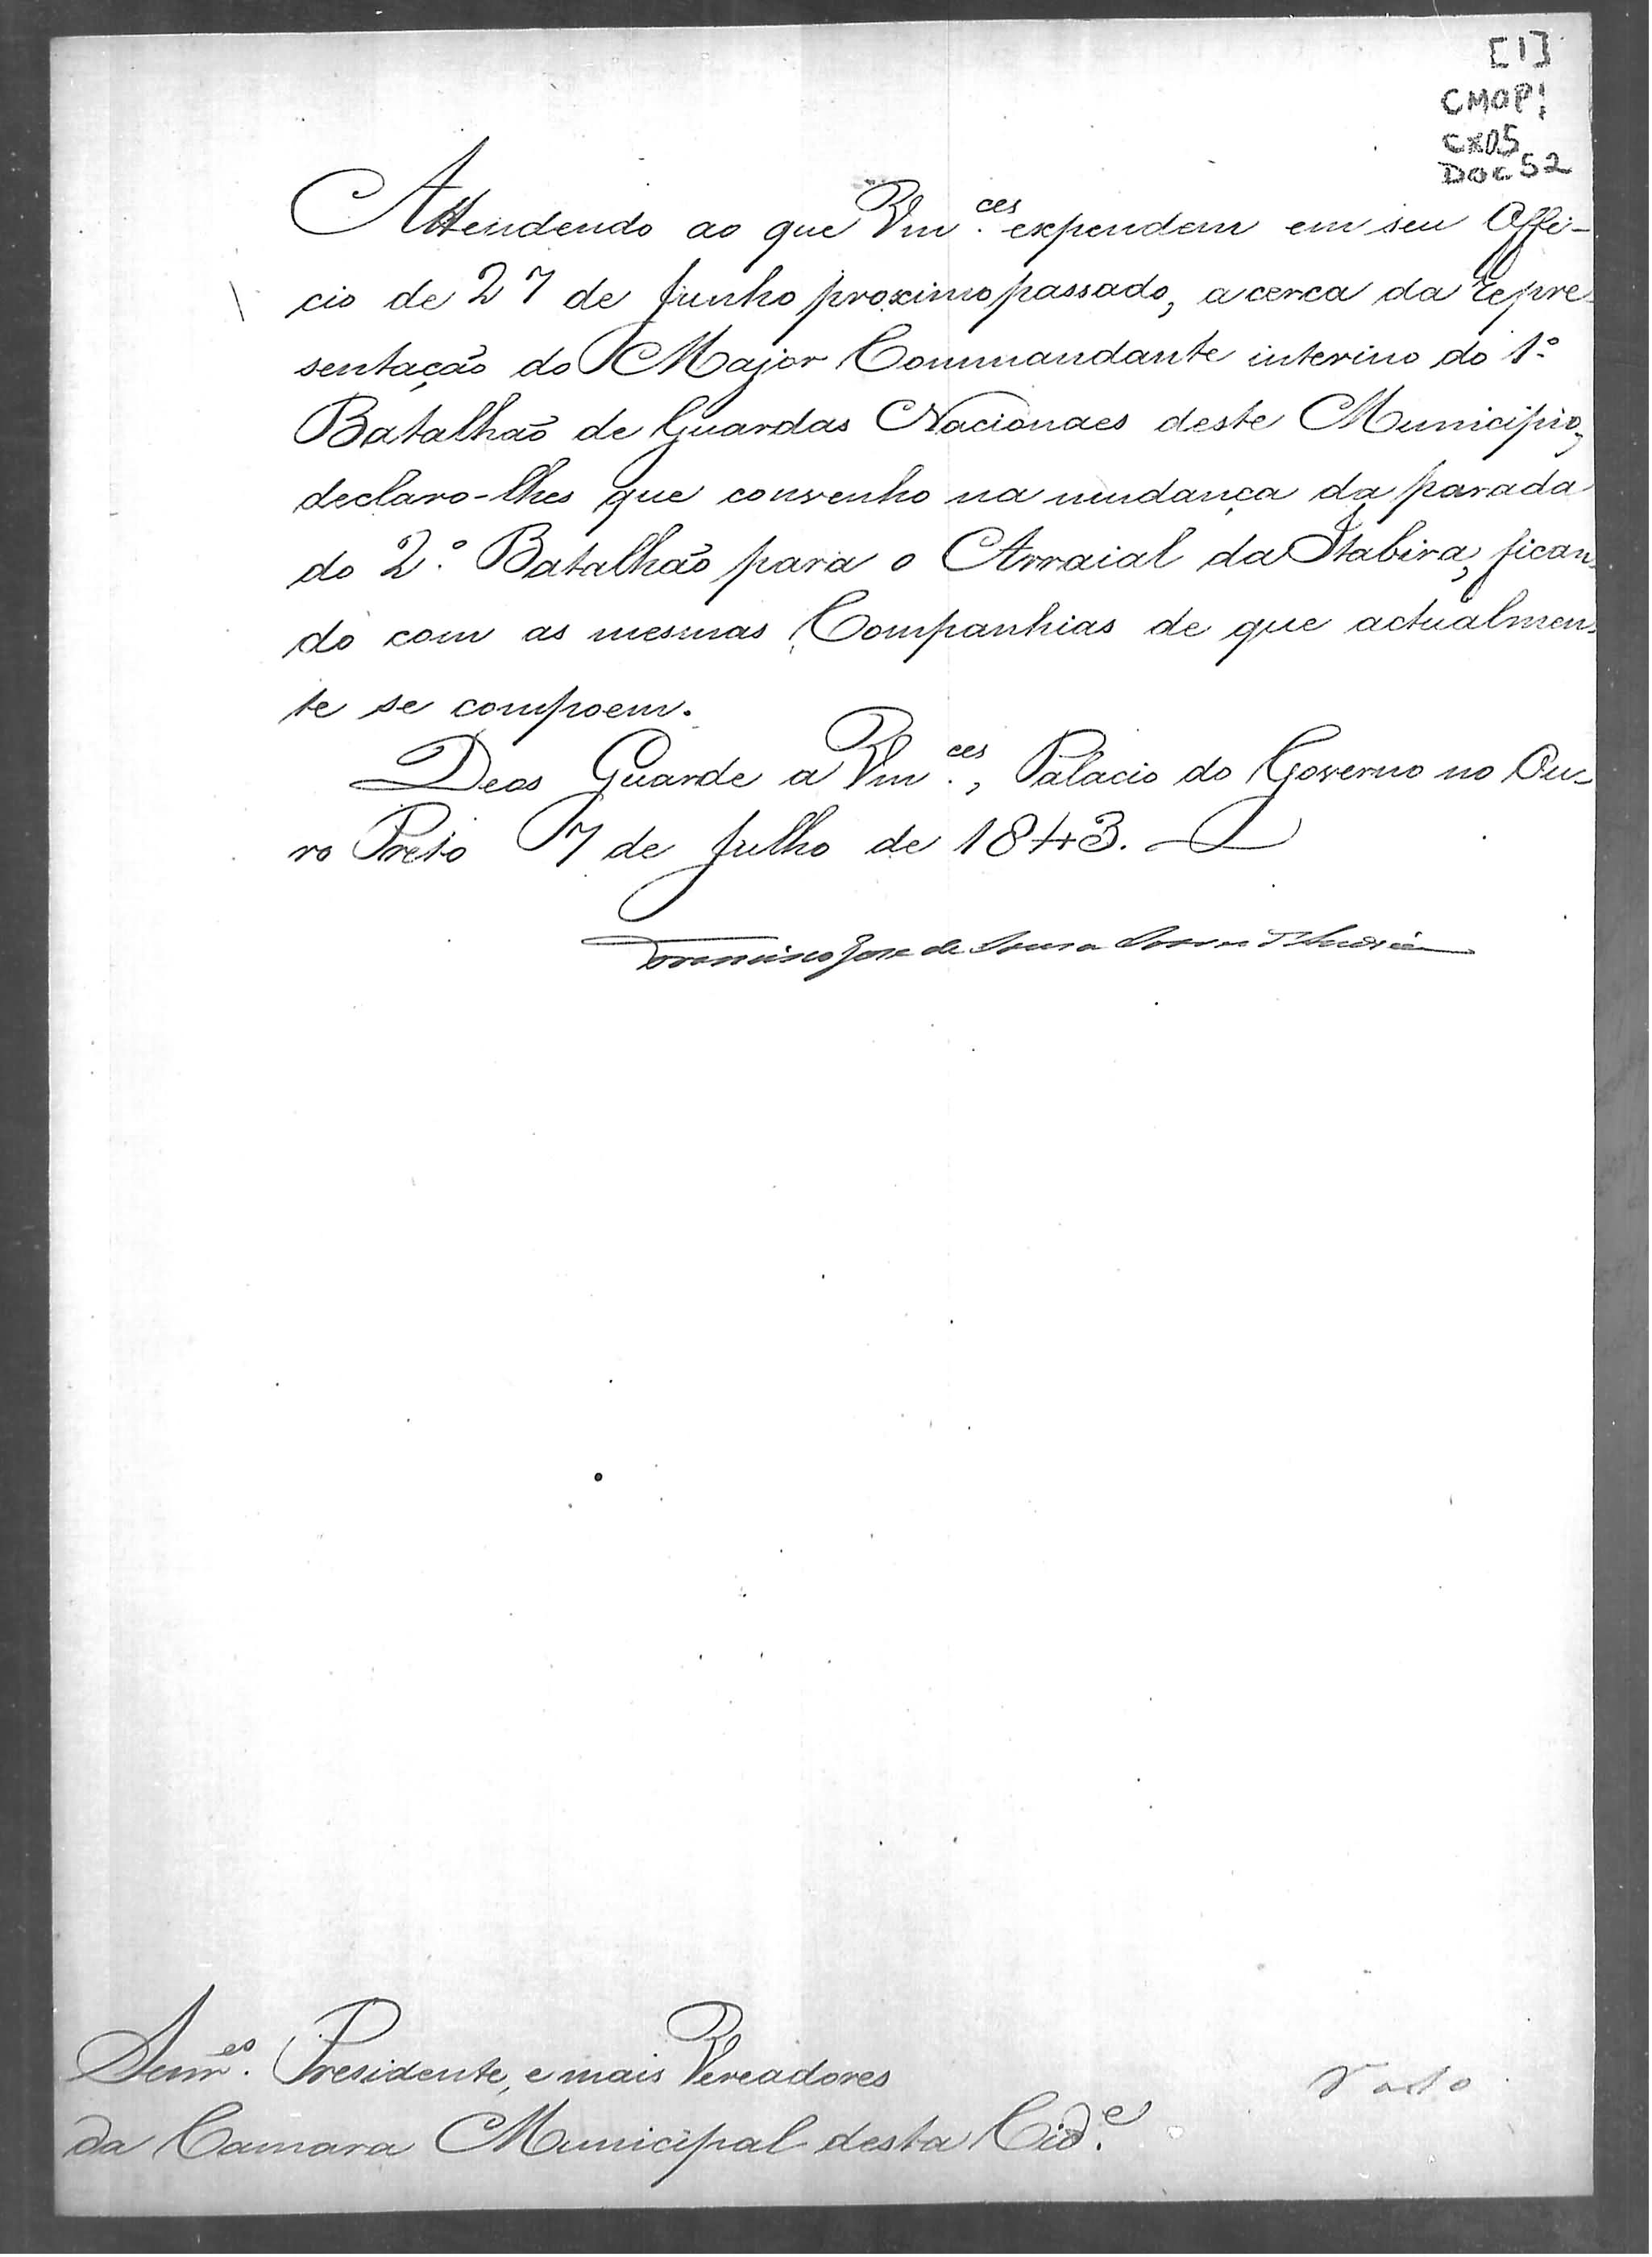 [1]
CMOP!
CX05
DOC 52
Attendendo ao que Vm.ces expendem em seu Offi-
cio de 27 de Junho proximo passado, a cerca da repre-
sentação do Major Commandante interino do 1.º
Batalhão de Guardas Nacionaes deste Municipio,
declaro-lhes que convenho na mudança da parada
do 2.º Batalhão para o Arraial da Itabira, fican-
do com as mesmas Companhias de que actualmen-
te se compoem.
Deos Guarde a Vm.ces, Palacio do Governo no Ou-
ro Preto 7 de Julho de 1843.
Francisco Jose de Sousa Soares d'Andréa
Senr.es Presidente, e mais Vereadores
da Camara Municipal desta Cid.e